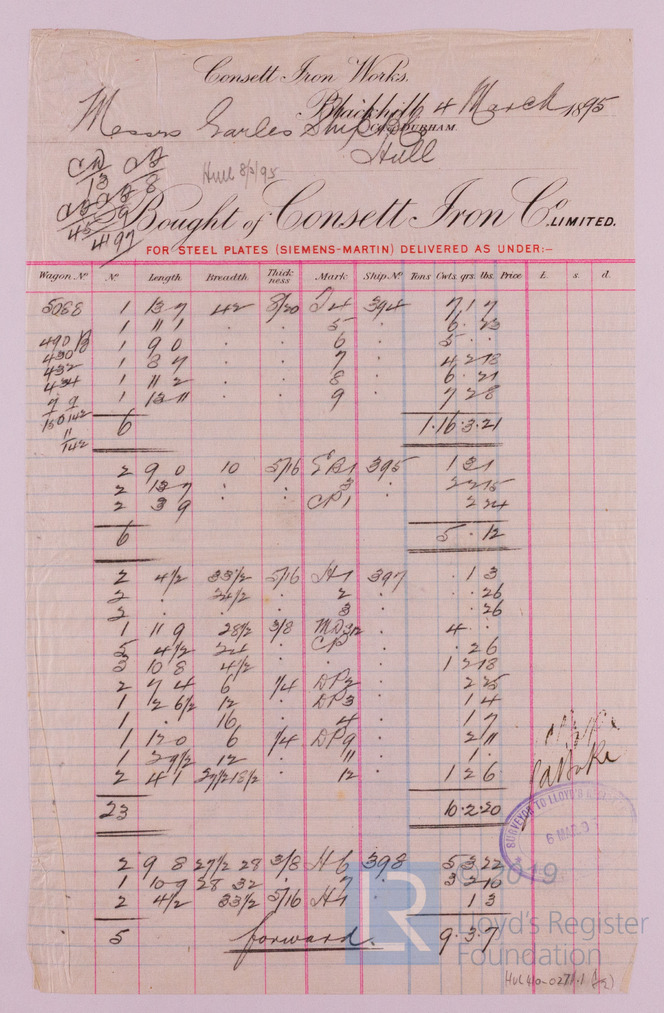 Consett Iron Works.
Blackhill, 4 March 1895
Co. DURHAM.
Messrs Earles Ship Co
Hull
Hull 8/2/95
13 8
45 59
4197
Bought of Consett Iron Co. LIMITED.
FOR STEEL PLATES (SIEMENS-MARTIN) DELIVERED AS UNDER:–
Wagon No. No. Length Breadth Thick ness Mark Ship No. Tons Cwts. qrs. lbs. Price £. s. d.
5088 1 13 7 42 8/20 J4 394 7 1 7
1 11 1 . . 5 . 6 . 23
490 1 9 0 . . 6 . 5 . .
430 1 8 7 . . 7 . 4 2 18
432 1 11 2 . . 8 . 6 . 21
434 1 13 11 . . 9 . 7 2 8
7 9
150 142 6 1. 16. 3. 21
11
142
2 9 0 10 5/16 EB1 395 1 3 1
2 13 7 : : 3 . 2 2 15
2 3 9 CP1 2 24
6 5 . 12
2 4 1/2 33 1/2 5/16 H1 397 . 1 3
2 . 24 1/2 . 2 . . 26
2 . . . 3 . . 26
1 11 9 28 1/2 3/8 4 . .
5 4 1/2 24 . CP . . 2 6
3 10 8 4 1/2 . . . 1 2 18
2 7 4 6 1/4 DP2 . 2 25
1 2 6 1/2 12 . DP3 . 1 4
1 . 16 . 4 . 1 7
1 12 0 6 1/4 DP9 . 2 11
1 2 9 1/2 12 . 11 . 1 .
2 4 1 27 1/2 18 1/2 . 12 . 1 2 6
23 10. 2. 20
SURVEYOR TO LLOYD'S
6 MAR 9
2 9 8 27 1/2 28 3/8 H6 398 5 3 22
1 10 9 28 32 . 7 . 3 2 10
2 4 1/2 33 1/2 5/16 H1 . 1 3
5 forward. 9. 3. 7
© 2019
LR
Lloyd's Register
Foundation